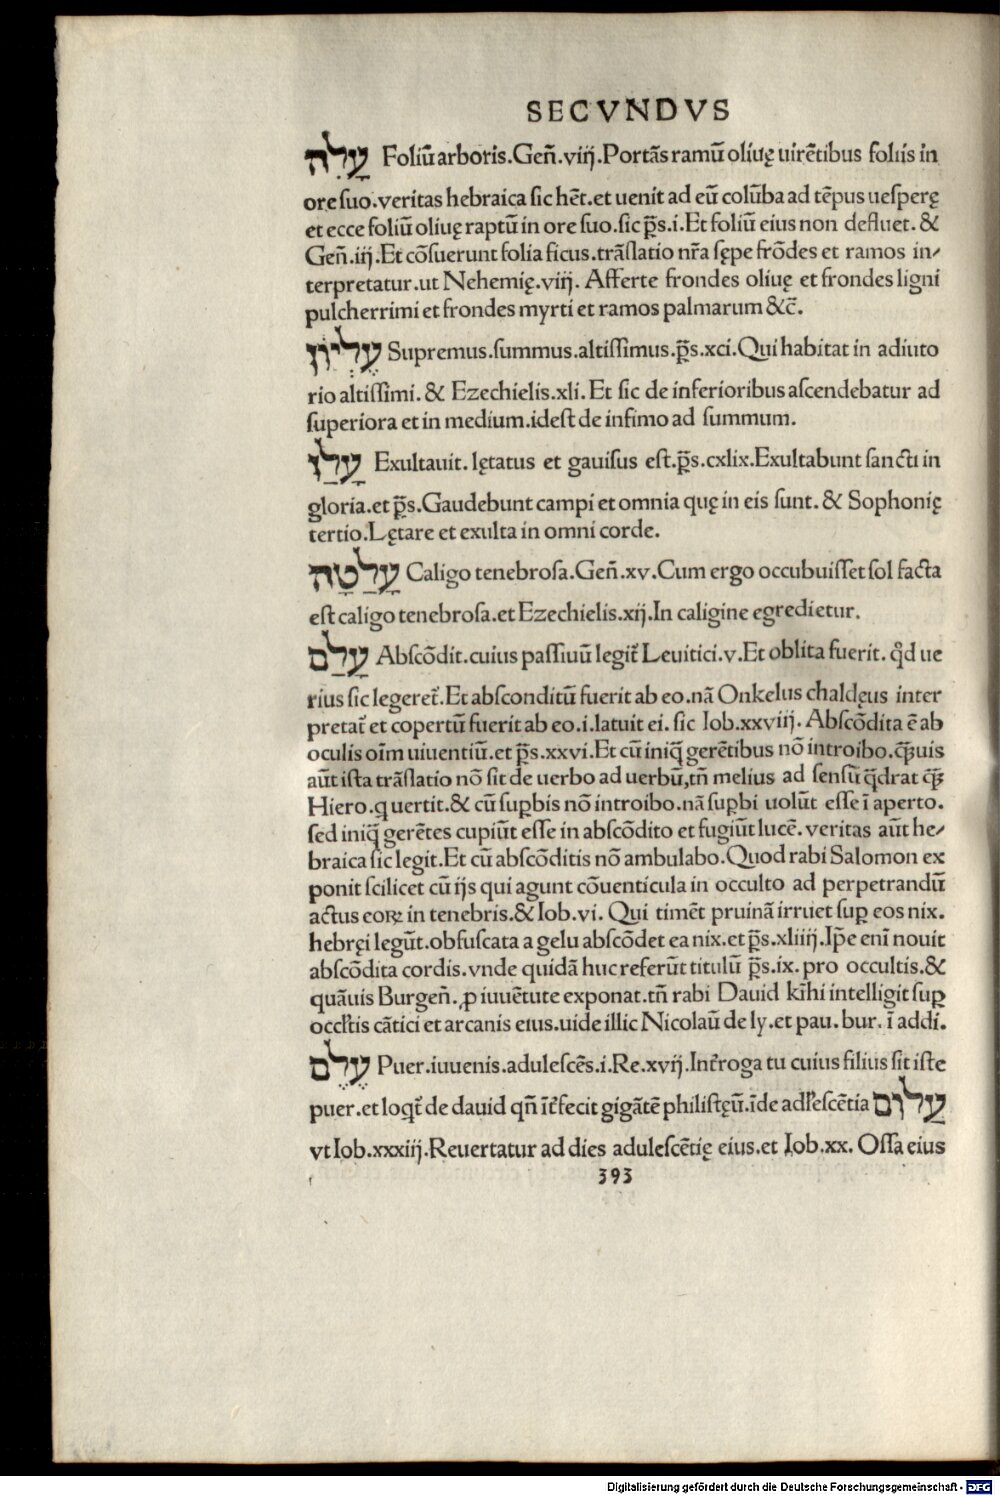 SECVNDVS
עָלֶה Foliū arboris.Geñ.viij.Portās ramū oliuę uirētibus foliis in
ore suo.veritas hebraica sic hēt.et uenit ad eū colūba ad tēpus uesperę
et ecce foliū oliuę raptū in ore suo.sic p̄s.i.Et foliū eius non defluet. &
Geñ.iij.Et cōsuerunt folia ficus.trāslatio nr̄a sępe frōdes et ramos in/
terpretatur.ut Nehemię.viij. Afferte frondes oliuę et frondes ligni
pulcherrimi et frondes myrti et ramos palmarum &c̄.
עֶלְיוֹן Supremus.summus.altissimus.p̄s.xci.Qui habitat in adiuto
rio altissimi. & Ezechielis.xli. Et sic de inferioribus ascendebatur ad
superiora et in medium.idest de infimo ad summum.
עָלַז Exultauit. lętatus et gauisus est.p̄s.cxlix.Exultabunt sancti in
gloria.et p̄s.Gaudebunt campi et omnia quę in eis sunt. & Sophonię
tertio.Lętare et exulta in omni corde.
עֲלַטָה Caligo tenebrosa.Geñ.xv.Cum ergo occubuisset sol facta
est caligo tenebrosa.et Ezechielis.xij.In caligine egredietur.
עָלַם Abscōdit.cuius passiuū legit̄ Leuitici.v.Et oblita fuerit. qd̄ ue
rius sic legeret̄.Et absconditū fuerit ab eo.nā Onkelus chaldęus inter
pretat̄ et copertū fuerit ab eo.i.latuit ei. sic Iob.xxviij. Abscōdita ē ab
oculis oīm uiuentiū.et p̄s.xxvi.Et cū iniq̄ gerētibus nō introibo.q̄ꝫuis
aūt ista trāslatio nō sit de uerbo ad uerbū,tñ melius ad sensū q̄drat q̄ꝫ
Hiero.q uertit.& cū suꝑbis nō introibo.nā suꝑbi uolūt esse ī aperto.
sed iniq̄ gerētes cupiūt esse in abscōdito et fugiūt lucē. veritas aūt he/
braica sic legit.Et cū abscōditis nō ambulabo.Quod rabi Salomon ex
ponit scilicet cū ijs qui agunt cōuenticula in occulto ad perpetrandū
actus eoꝝ in tenebris.& Iob.vi. Qui timēt pruinā irruet suꝑ eos nix.
hebręi legūt.obfuscata a gelu abscōdet ea nix.et p̄s.xliiij.Ip̄e enī nouit
abscōdita cordis.vnde quidā huc referūt titulū p̄s.ix. pro occultis.&
quāuis Burgeñ.ꝓ iuuētute exponat.tñ rabi Dauid kīhi intelligit suꝑ
occl̄tis cātici et arcanis eius.uide illic Nicolaū de ly.et pau. bur. ī addi.
עֶלֶם Puer.iuuenis.adulescēs.i.Re.xvij.Int̄roga tu cuius filius sit iste
puer.et loqt̄ de dauid qñ īt̄fecit gigātē philistęū.īde adl̄escētia עֲלוּם
vt Iob.xxxiij.Reuertatur ad dies adulescētię eius.et Iob.xx. Ossa eius
393
Digitalisierung gefördert durch die Deutsche Forschungsgemeinschaft - DFG